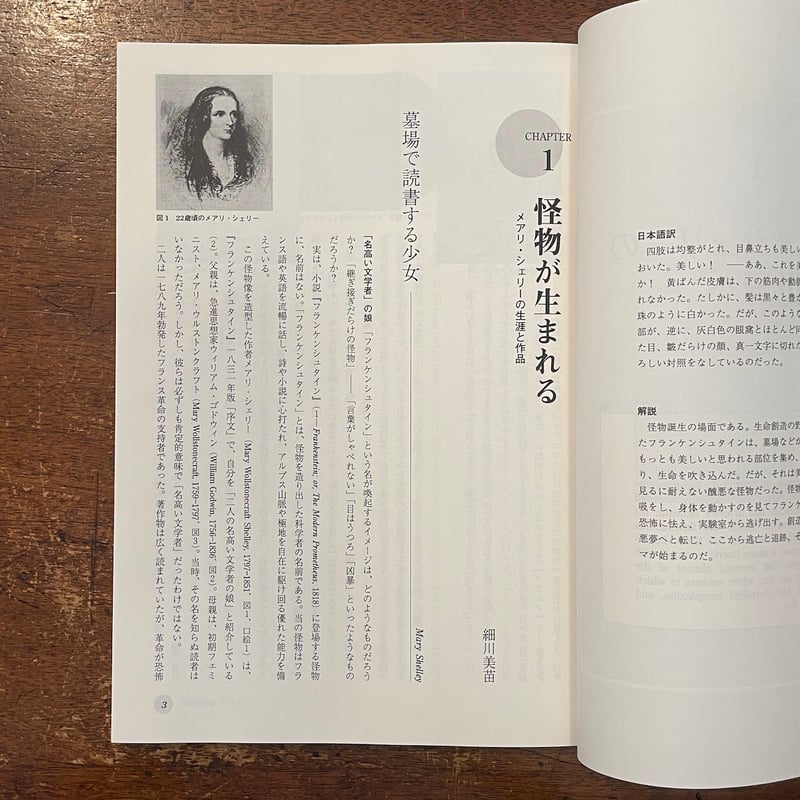 日本語訳
四肢は均整がとれ、目鼻立ちも美し
おいた。美しい! ――ああ、これを美
か! 黄ばんだ皮膚は、下の筋肉や動脈
れなかった。たしかに、髪は黒々と豊
珠のように白かった。だが、このような
部が、逆に、灰白色の眼窩とほとんど同
た目、皺だらけの顔、真一文字に切れた
ろしい対照をなしているのだった。
解説
怪物誕生の場面である。生命創造の野
たフランケンシュタインは、墓場などか
もっとも美しいと思われる部位を集め、
り、生命を吹き込んだ。だが、それは美
見るに耐えない醜悪な怪物だった。怪物
吸をし、身体を動かすのを見てフランケ
恐怖に怯え、実験室から逃げ出す。創造
悪夢へと転じ、ここから逃亡と追跡、そ
マが始まるのだ。
CHAPTER
1
怪物が生まれる
メアリ・シェリーの生涯と作品
細川美苗
墓場で読書する少女
Mary Shelley
「名高い文学者」の娘 「フランケンシュタイン」という名が喚起するイメージは、どのようなものだろう
か?「継ぎ接ぎだらけの怪物」――「言葉がしゃべれない」「目はうつろ」「凶暴」といったようなもの
だろうか?
実は、小説『フランケンシュタイン』(1― Frankenstein; or, The Modern Prometheus, 1818)に登場する怪物
に、名前はない。「フランケンシュタイン」とは、怪物を造り出した科学者の名前である。当の怪物はフラ
ンス語や英語を流暢に話し、詩や小説に心打たれ、アルプス山脈や極地を自在に駆け回る優れた能力を備
えている。
この怪物像を造型した作者メアリ・シェリー(Mary Wollstonecraft Shelley, 1797-1851 図1、口絵1)は、
『フランケンシュタイン』一八三一年版「序文」で、自分を「二人の名高い文学者の娘」と紹介している
(2)。父親は、急進思想家ウィリアム・ゴドウィン(William Godwin, 1756-1836 図2)。母親は、初期フェミ
ニスト、メアリ・ウルストンクラフト(Mary Wollstonecraft, 1759-1797 図3)。当時、その名を知らぬ読者は
いなかっただろう。しかし、彼らは必ずしも肯定的意味で「名高い文学者」だったわけではない。
二人は一七八九年勃発したフランス革命の支持者であった。著作物は広く読まれていたが、革命が恐怖
図1 22歳頃のメアリ・シェリー
3